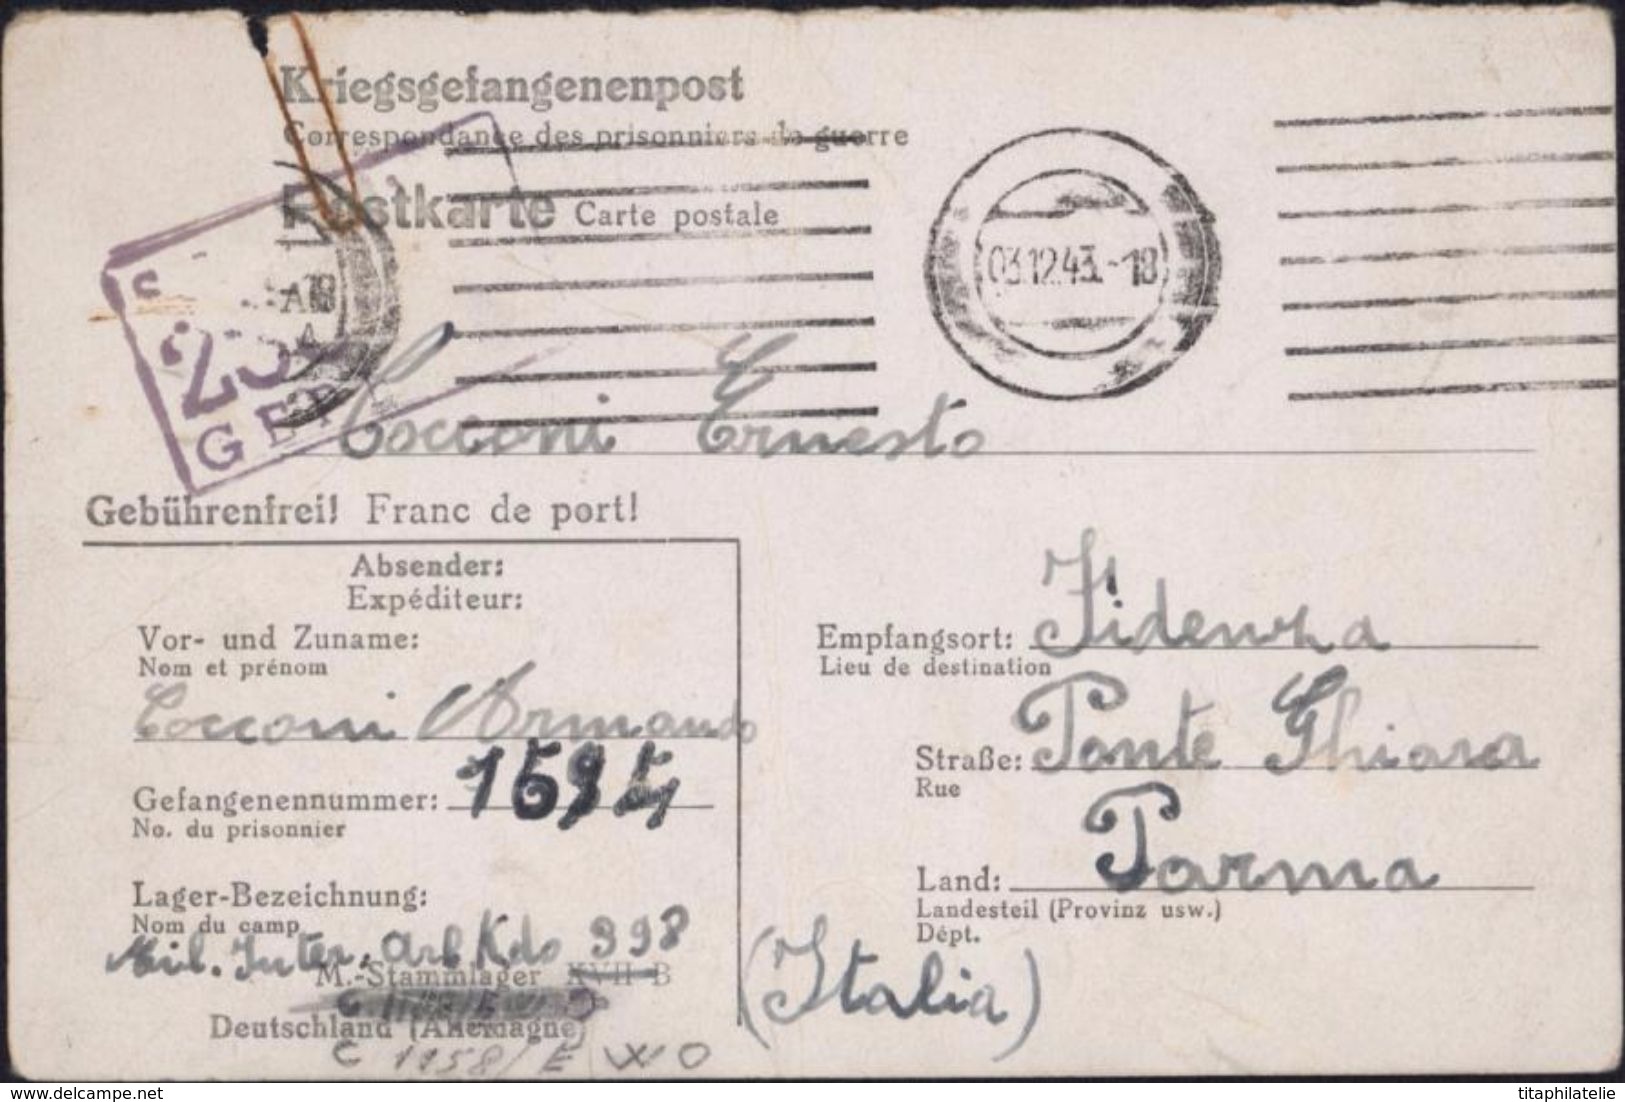 Kriegsgefangenenpost
Correspondance des prisonniers de guerre
Postkarte Carte postale
03.12.43.-18
23
GEP
Cocconi Ernesto
Gebührenfrei! Franc de port!
Absender:
Expéditeur:
Vor- und Zuname:
Nom et prénom
Cocconi Armando
Gefangenennummer:
No. du prisonnier
Lager-Bezeichnung:
Nom du camp
Mil. Inter. Arb Kdo 398
M.-Stammlager XVII B
Deutschland (Allemagne)
Empfangsort: Fidenza
Lieu de destination
Straße: Ponte Ghiara
Rue
Land: Parma
Landesteil (Provinz usw.)
Dépt.
(Italia)
delcampe.net
titaphilatelie